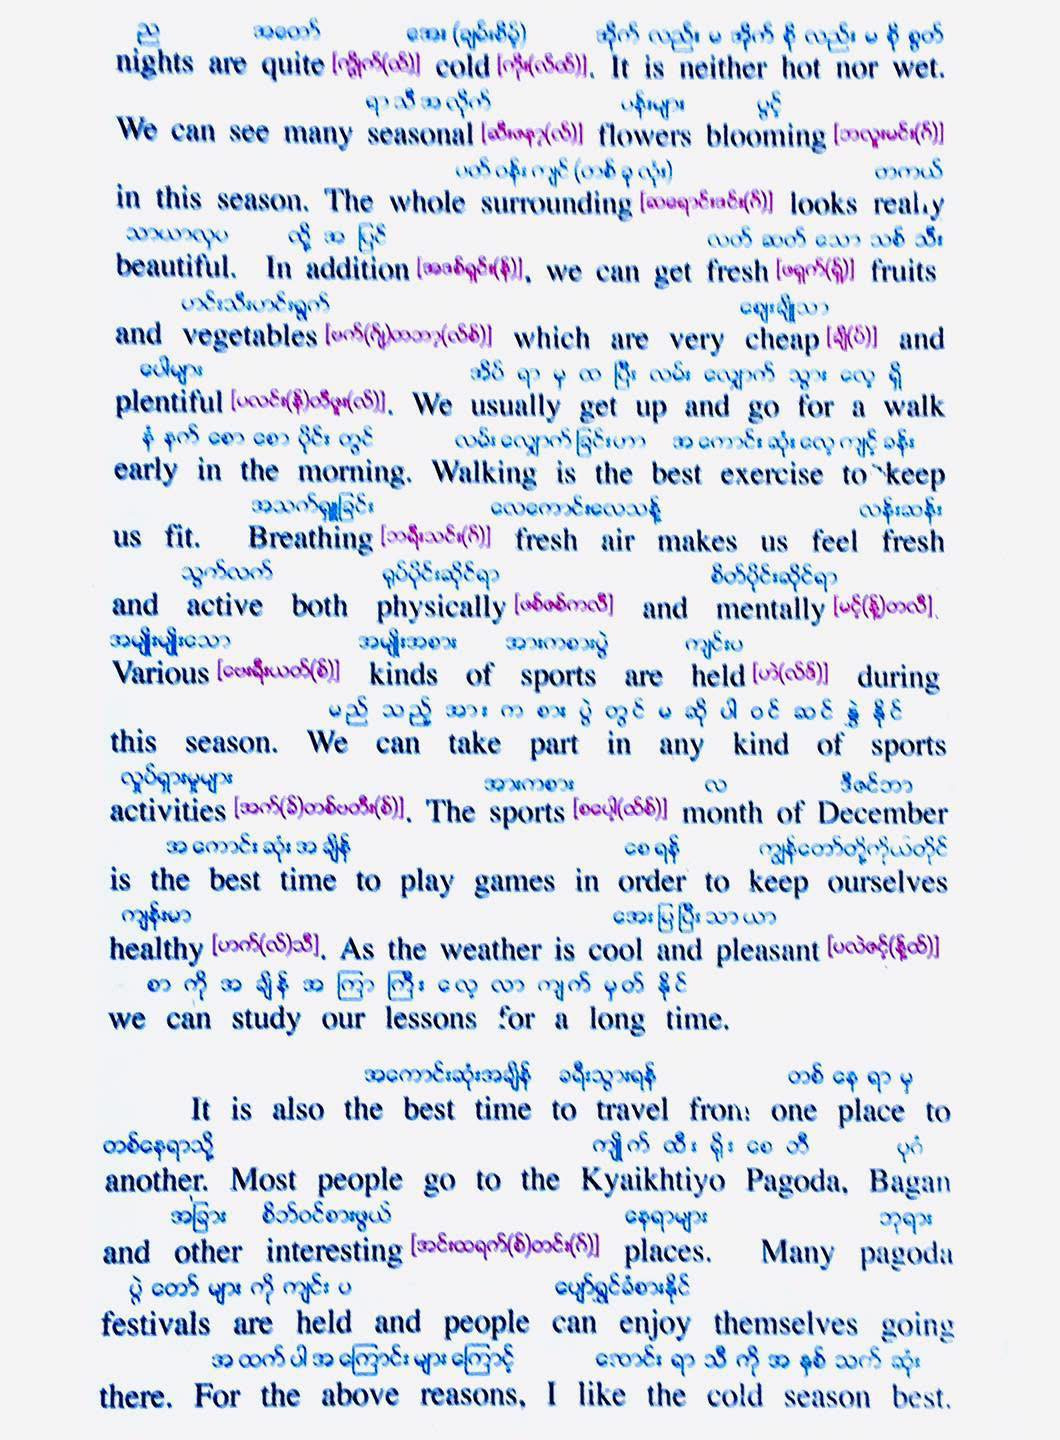 ည အတော် အေး (ချမ်းစိမ့်) အိုက် လည်း မ အိုက် စို လည်း မ စို စွတ်
nights are quite [ကွိုက်(ထ်)] cold [ကိုး(လ်ထ်)]. It is neither hot nor wet.
ရာသီအလိုက် ပန်းများ ပွင့်
We can see many seasonal [ဆီးဇနော့(လ်)] flowers blooming [ဘလူးမင်း(ဂ်)]
ပတ်ဝန်းကျင် (တစ်ခုလုံး) တကယ်
in this season. The whole surrounding [ဆရောင်းဒင်း(ဂ်)] looks really
သာယာလှပ ထို့ အ ပြင် လတ် ဆတ် သော သစ် သီး
beautiful. In addition [အဒစ်ရှင်း(န်)], we can get fresh [ဖရက်(ရှ်)] fruits
ဟင်းသီးဟင်းရွက် ဈေးချိုသာ
and vegetables which are very cheap [ချိ(ပ်)] and
ပေါများ အိပ် ရာ မှ ထ ပြီး လမ်း လျှောက် သွား လေ့ ရှိ
plentiful [ပလင်း(န်)တီဖူး(လ်)]. We usually get up and go for a walk
နံ နက် စော စော ပိုင်း တွင် လမ်းလျှောက်ခြင်းဟာ အကောင်းဆုံးလေ့ကျင့်ခန်း
early in the morning. Walking is the best exercise to keep
အသက်ရှူခြင်း လေကောင်းလေသန့် လန်းဆန်း
us fit. Breathing [ဘရီးသင်း(ဂ်)] fresh air makes us feel fresh
သွက်လက် ရုပ်ပိုင်းဆိုင်ရာ စိတ်ပိုင်းဆိုင်ရာ
and active both physically [ဖစ်ဇစ်ကလီ] and mentally [မင့်(န့်)တလီ].
အမျိုးမျိုးသော အမျိုးအစား အားကစားပွဲ ကျင်းပ
Various [ဗေးရီးယတ်(စ်)] kinds of sports are held [ဟဲ(လ်ဒ်)] during
မည် သည့် အား က စား ပွဲ တွင် မ ဆို ပါ ဝင် ဆင် နွှဲ နိုင်
this season. We can take part in any kind of sports
လှုပ်ရှားမှုများ အားကစား လ ဒီဇင်ဘာ
activities [အက်(ခ်)တစ်ဗတီး(စ်)]. The sports [စပေါ့(ထ်စ်)] month of December
အကောင်းဆုံးအချိန် စေရန် ကျွန်တော်တို့ကိုယ်တိုင်
is the best time to play games in order to keep ourselves
ကျန်းမာ အေးမြပြီးသာယာ
healthy [ဟက်(လ်)သီ]. As the weather is cool and pleasant [ပလဲဇင့်(န့်ထ်)]
စာ ကို အ ချိန် အ ကြာ ကြီး လေ့ လာ ကျက် မှတ် နိုင်
we can study our lessons for a long time.
အကောင်းဆုံးအချိန် ခရီးသွားရန် တစ် နေ ရာ မှ
It is also the best time to travel from one place to
တစ်နေရာသို့ ကျိုက် ထီး ရိုး စေ တီ ပုဂံ
another. Most people go to the Kyaikhtiyo Pagoda, Bagan
အခြား စိတ်ဝင်စားဖွယ် နေရာများ ဘုရား
and other interesting [အင်းထရက်(စ်)တင်း(ဂ်)] places. Many pagoda
ပွဲ တော် များ ကို ကျင်း ပ ပျော်ရွှင်ခံစားနိုင်
festivals are held and people can enjoy themselves going
အထက်ပါအကြောင်းများကြောင့် ဆောင်း ရာ သီ ကို အ နှစ် သက် ဆုံး
there. For the above reasons, I like the cold season best.